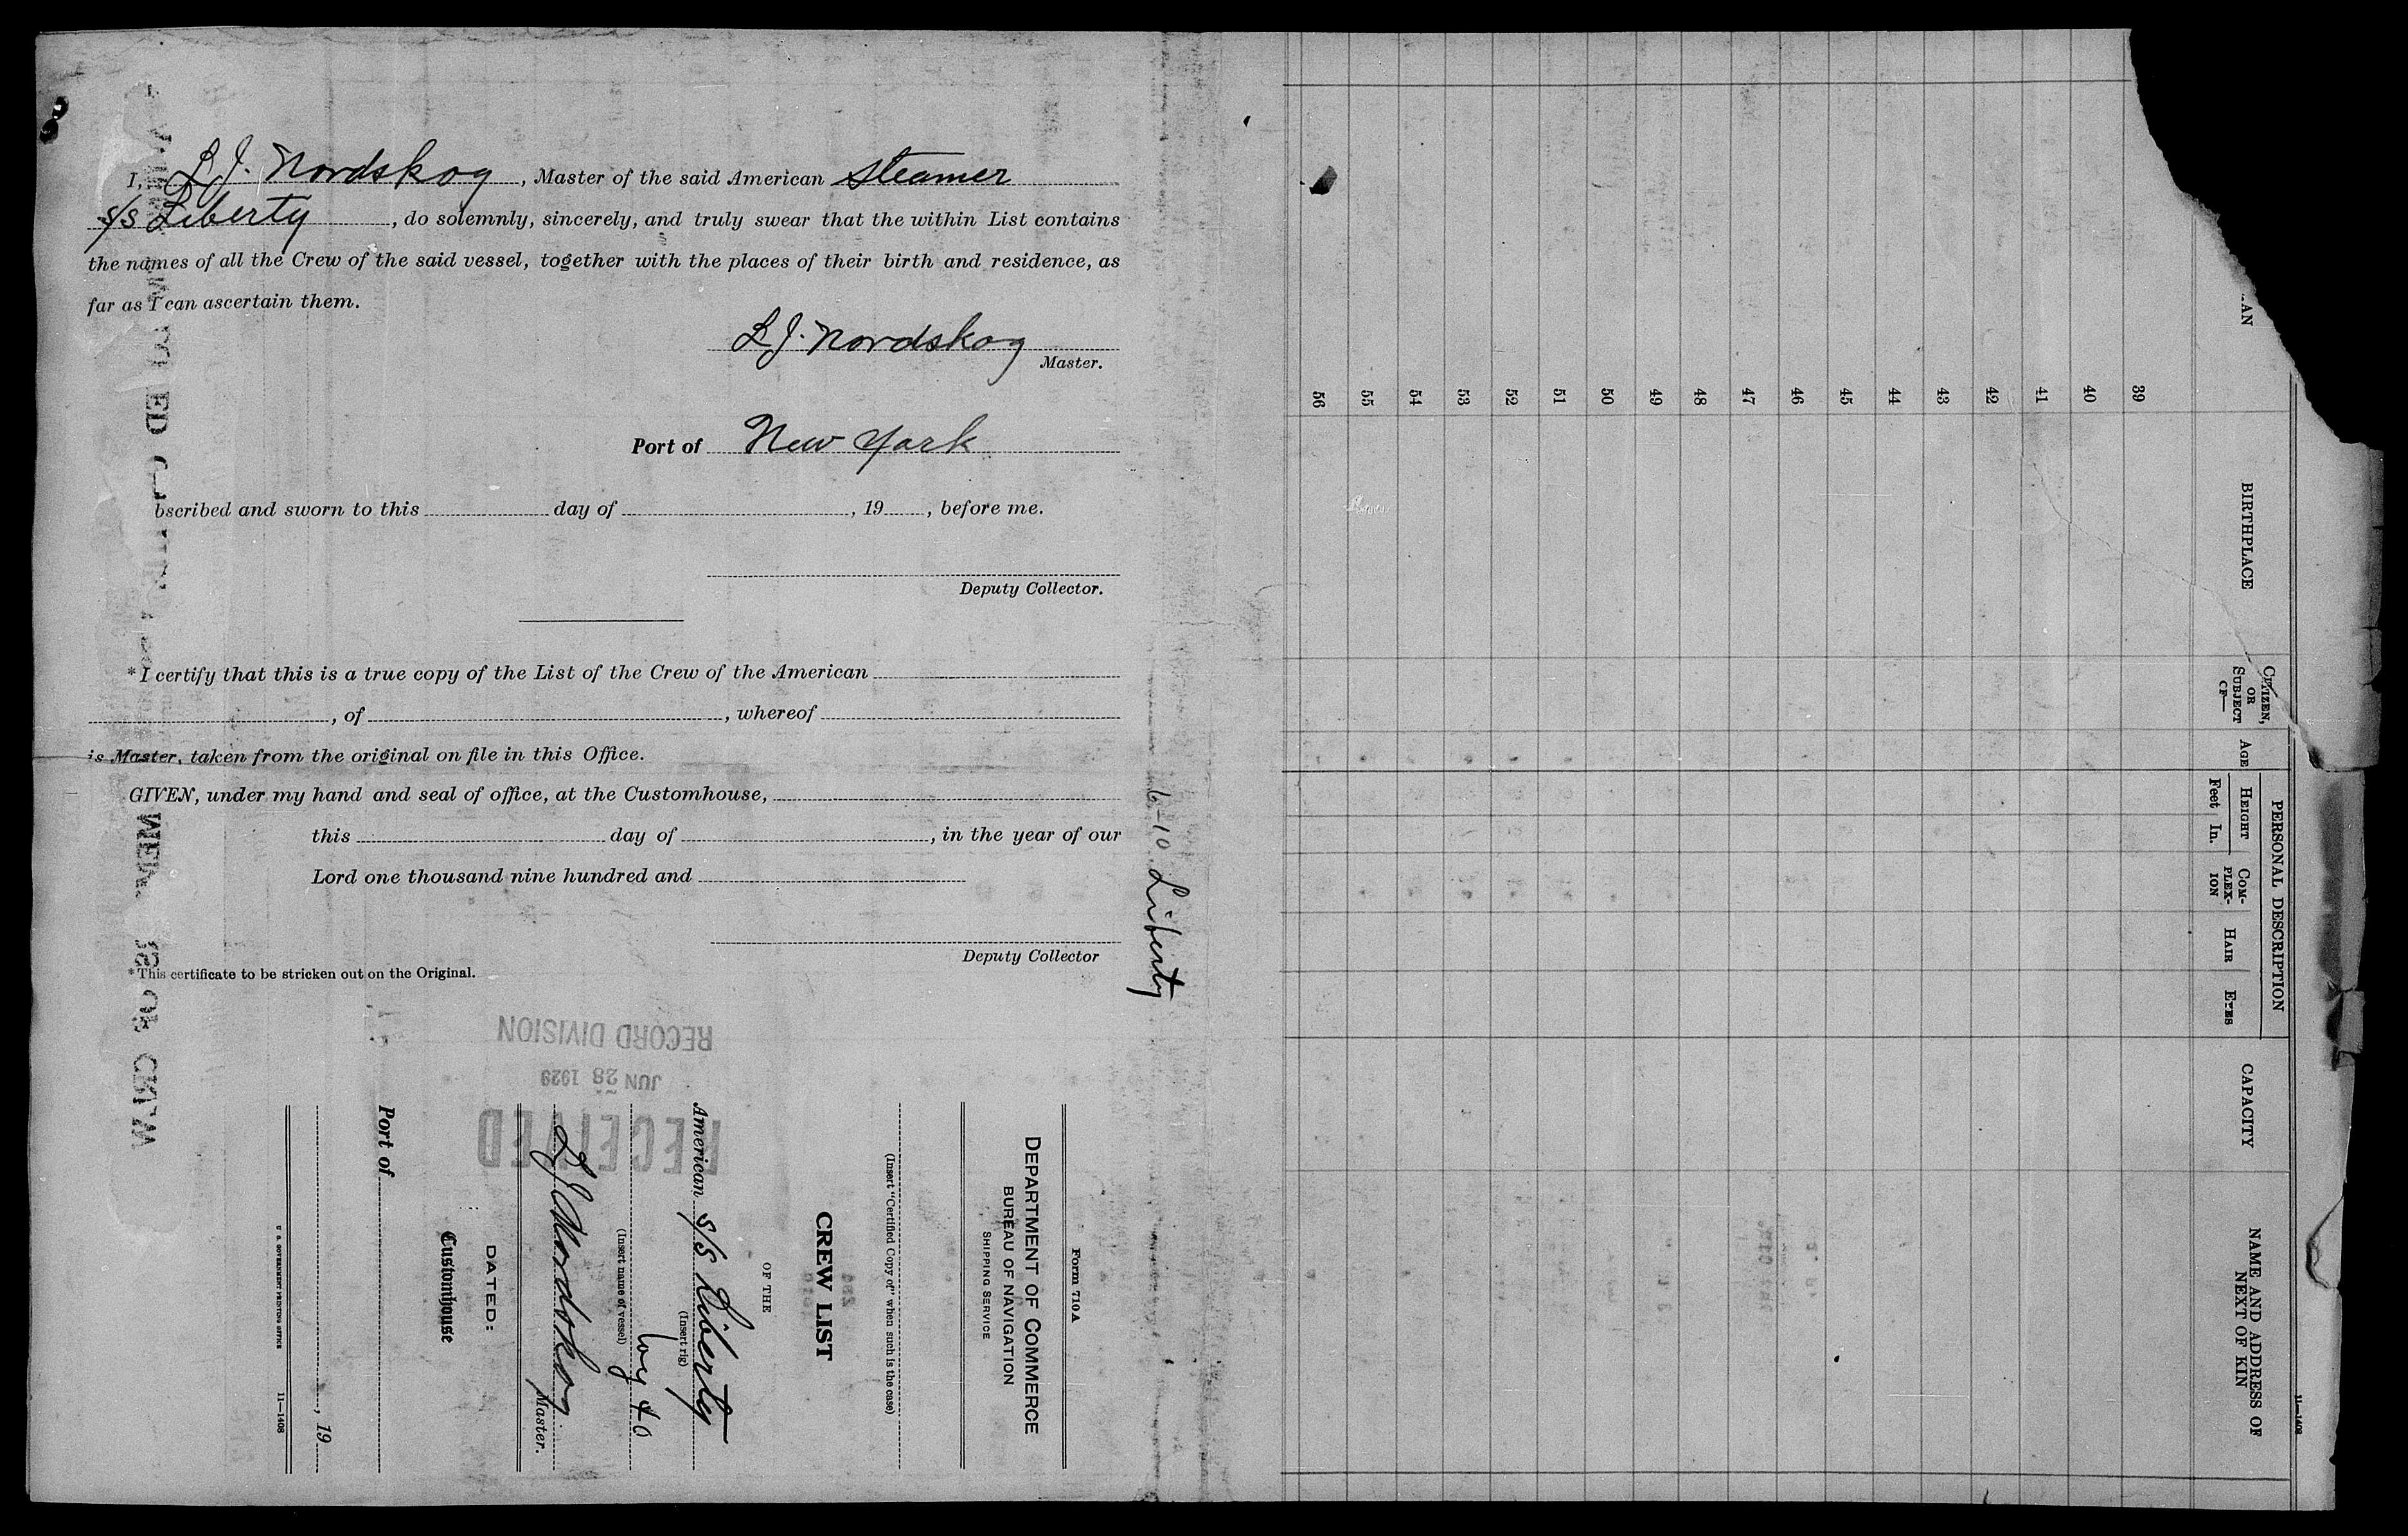 I, L J. Nordskog, Master of the said American steamer
s/s Liberty, do solemnly, sincerely, and truly swear that the within List contains
the names of all the Crew of the said vessel, together with the places of their birth and residence, as
far as I can ascertain them.
L J. Nordskog
Master.
Port of New York
bscribed and sworn to this day of , 19 , before me.
Deputy Collector.
*I certify that this is a true copy of the List of the Crew of the American
, of , whereof
is Master, taken from the original on file in this Office.
GIVEN, under my hand and seal of office, at the Customhouse,
this day of , in the year of our
Lord one thousand nine hundred and
Deputy Collector
*This certificate to be stricken out on the Original.
6-10 Liberty
RECEIVED
JUN 28 1929
RECORD DIVISION
Form 710 A
DEPARTMENT OF COMMERCE
BUREAU OF NAVIGATION
SHIPPING SERVICE
(Insert "Certified Copy of" when such is the case)
CREW LIST
OF THE
American s/s Liberty
(Insert rig)
Voy 40
(Insert name of vessel)
L J Nordskog
Master.
DATED:
Customhouse
Port of
, 19
U. S. GOVERNMENT PRINTING OFFICE 11—1408
11—1408
PERSONAL DESCRIPTION
BIRTHPLACE
CITIZEN,
OR
SUBJECT
OF—
AGE
HEIGHT
Feet In.
COM-
PLEX-
ION
HAIR
EYES
CAPACITY
NAME AND ADDRESS OF
NEXT OF KIN
39
40
41
42
43
44
45
46
47
48
49
50
51
52
53
54
55
56